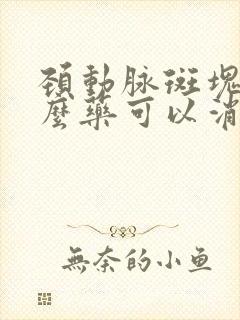 頸動脉斑塊
麼藥可以消
無奈的小鱼